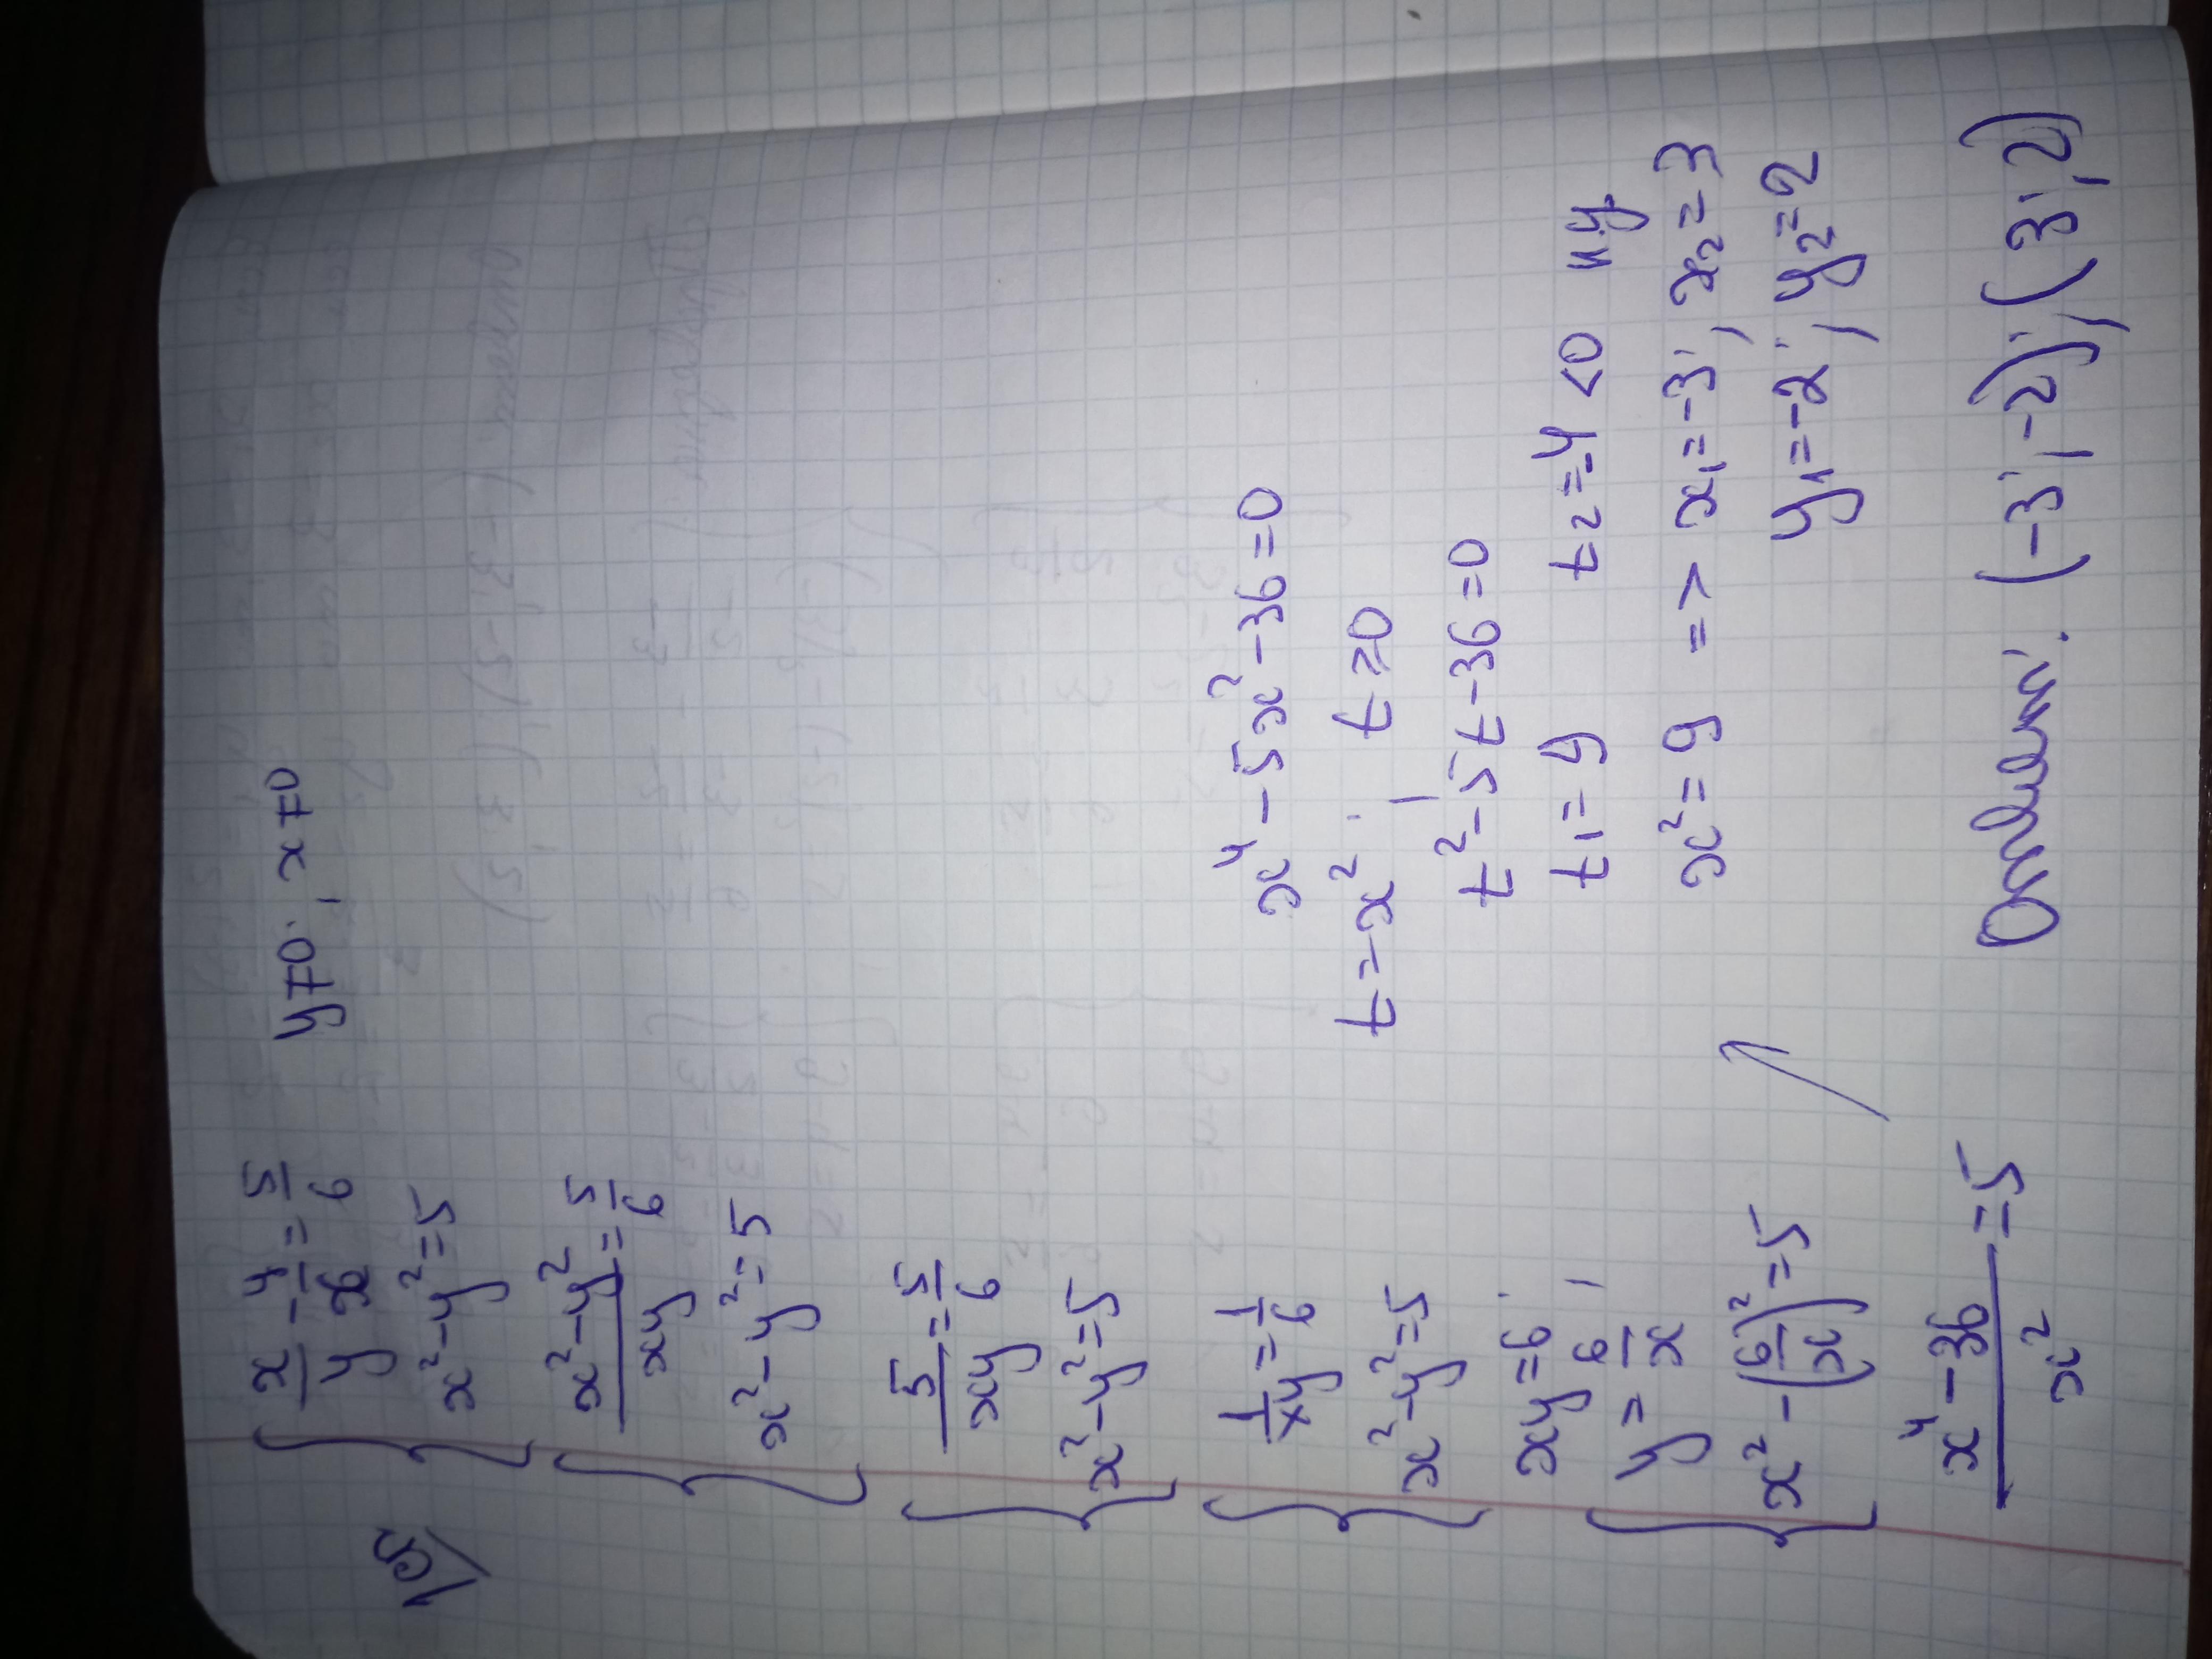 б)
{ x/y - y/x = 5/6    y≠0; x≠0
{ x² - y² = 5
{ (x² - y²)/xy = 5/6
{ x² - y² = 5
{ 5/xy = 5/6
{ x² - y² = 5
{ 1/xy = 1/6
{ x² - y² = 5
xy = 6;
{ y = 6/x
{ x² - (6/x)² = 5
(x⁴ - 36)/x² = 5
x⁴ - 5x² - 36 = 0
t = x²; t ≥ 0
t² - 5t - 36 = 0
t₁ = 9    t₂ = -4 < 0    н.у
x² = 9 => x₁ = -3; x₂ = 3
y₁ = -2; y₂ = 2
(-3; -2); (3; 2)